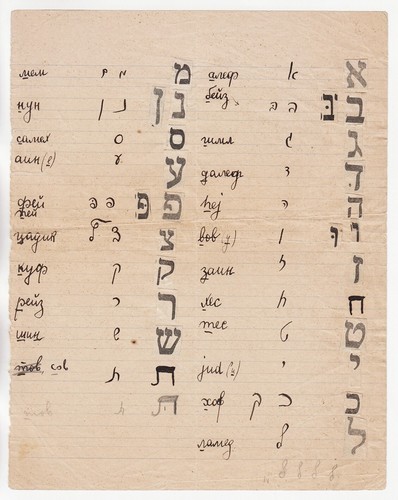 алеф א א
бейз ב בּ ב
гимл ג ג
далеф ד ד
hej ה ה
вов ו וּ ו
заин ז ז
хес ח ח
тес ט ט
jud י י
хоф כ כ
ламед ל ל
мем ם מ מ
нун נ ן נ ן
самех ס ס
аин(е) ע ע
фей פ פּ פּ פ
пей
цадик צ ץ צ
куф ק ק
рейз ר ר
шин ש ש
тов, сов ת ת
тов ת ת